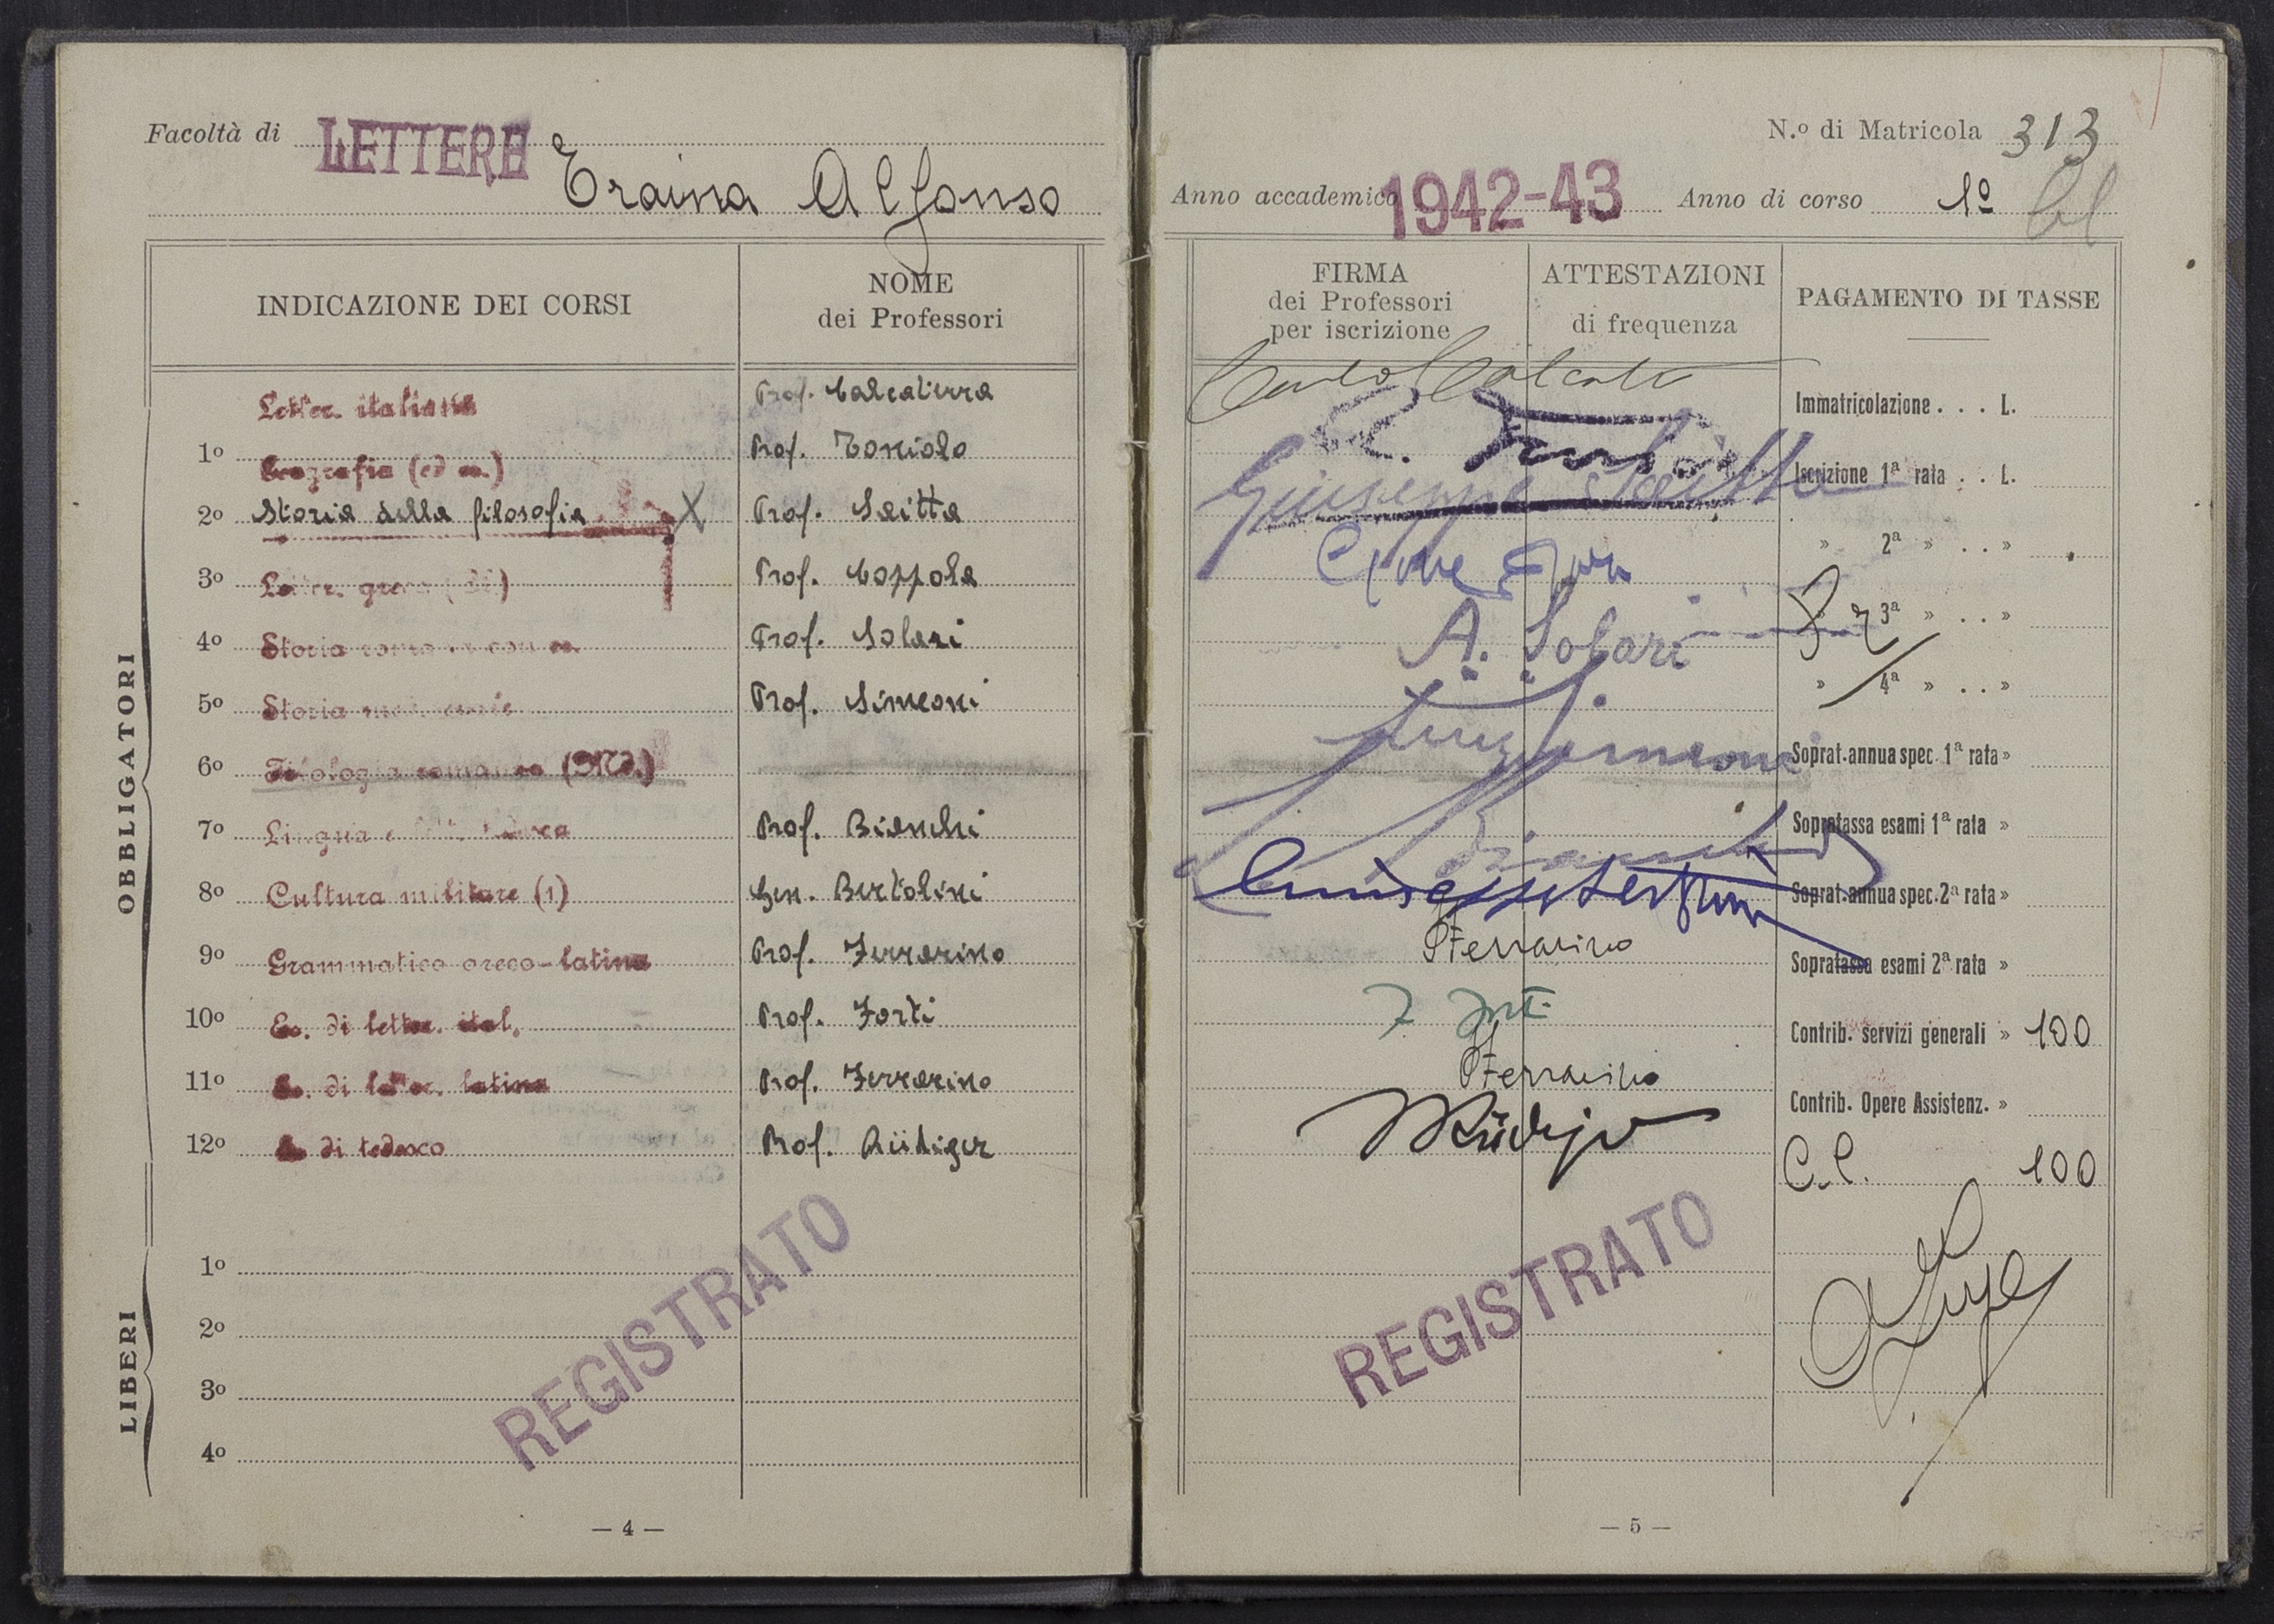 Facoltà di LETTERE
Traina Alfonso
INDICAZIONE DEI CORSI
NOME
dei Professori
OBBLIGATORI
Letter. italiana Prof. Calcaterra
1º Geografia Prof. Toniolo
2º Storia della filosofia X Prof. Saitta
3º Letter. greca Prof. Coppola
4º Storia Prof. Solari
5º Storia Prof. Simeoni
6º Filologia romanza
7º Lingua e Prof. Bianchi
8º Cultura militare (1) Gen. Bertolini
9º Grammatica greco-latina Prof. Ferrarino
10º Es. di letter. ital. Prof. Forti
11º Es. di letter. latina Prof. Ferrarino
12º Es. di tedesco Prof. Rüdiger
LIBERI
1º
2º
3º
4º
REGISTRATO
— 4 —
N.º di Matricola 313
Anno accademico 1942-43 Anno di corso 1º
FIRMA
dei Professori
per iscrizione
ATTESTAZIONI
di frequenza
PAGAMENTO DI TASSE
Giuseppe Saitta
A. Solari
Luigi Simeoni
Bianchi
Ferrarino
F Forti
Ferrarino
Rüdiger
Immatricolazione . . . L.
Iscrizione 1ª rata . . L.
» 2ª » . . »
» 3ª » . . »
» 4ª » . . »
Soprat. annua spec. 1ª rata »
Sopratassa esami 1ª rata »
Soprat. annua spec. 2ª rata »
Sopratassa esami 2ª rata »
Contrib. servizi generali » 100
Contrib. Opere Assistenz. »
C.C. 100
REGISTRATO
— 5 —